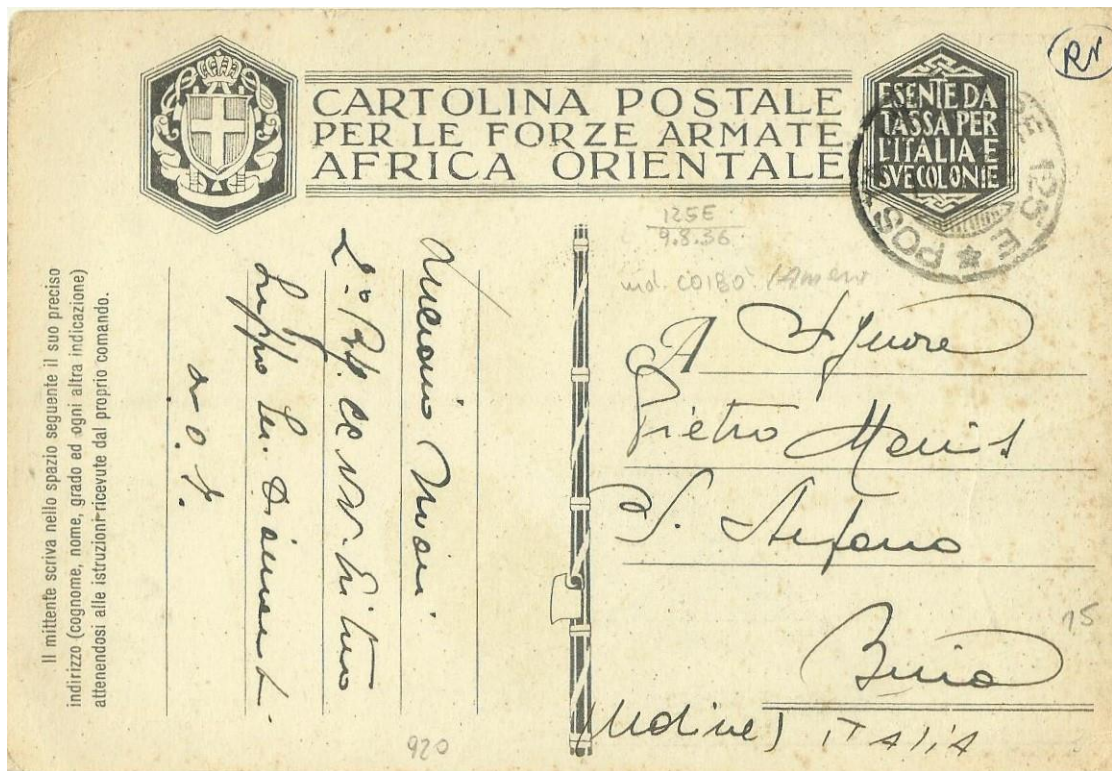 CARTOLINA POSTALE
PER LE FORZE ARMATE
AFRICA ORIENTALE
ESENTE DA
TASSA PER
L'ITALIA E
SVE COLONIE
125 E
RN
125E
9.8.36
Il mittente scriva nello spazio seguente il suo preciso
indirizzo (cognome, nome, grado ed ogni altra indicazione)
attenendosi alle istruzioni ricevute dal proprio comando.
2º CC. NN. Eritreo
Gruppo
A. O. I.
A Signore
Pietro Menis
S. Stefano
Buia
(Udine) ITALIA
15
920